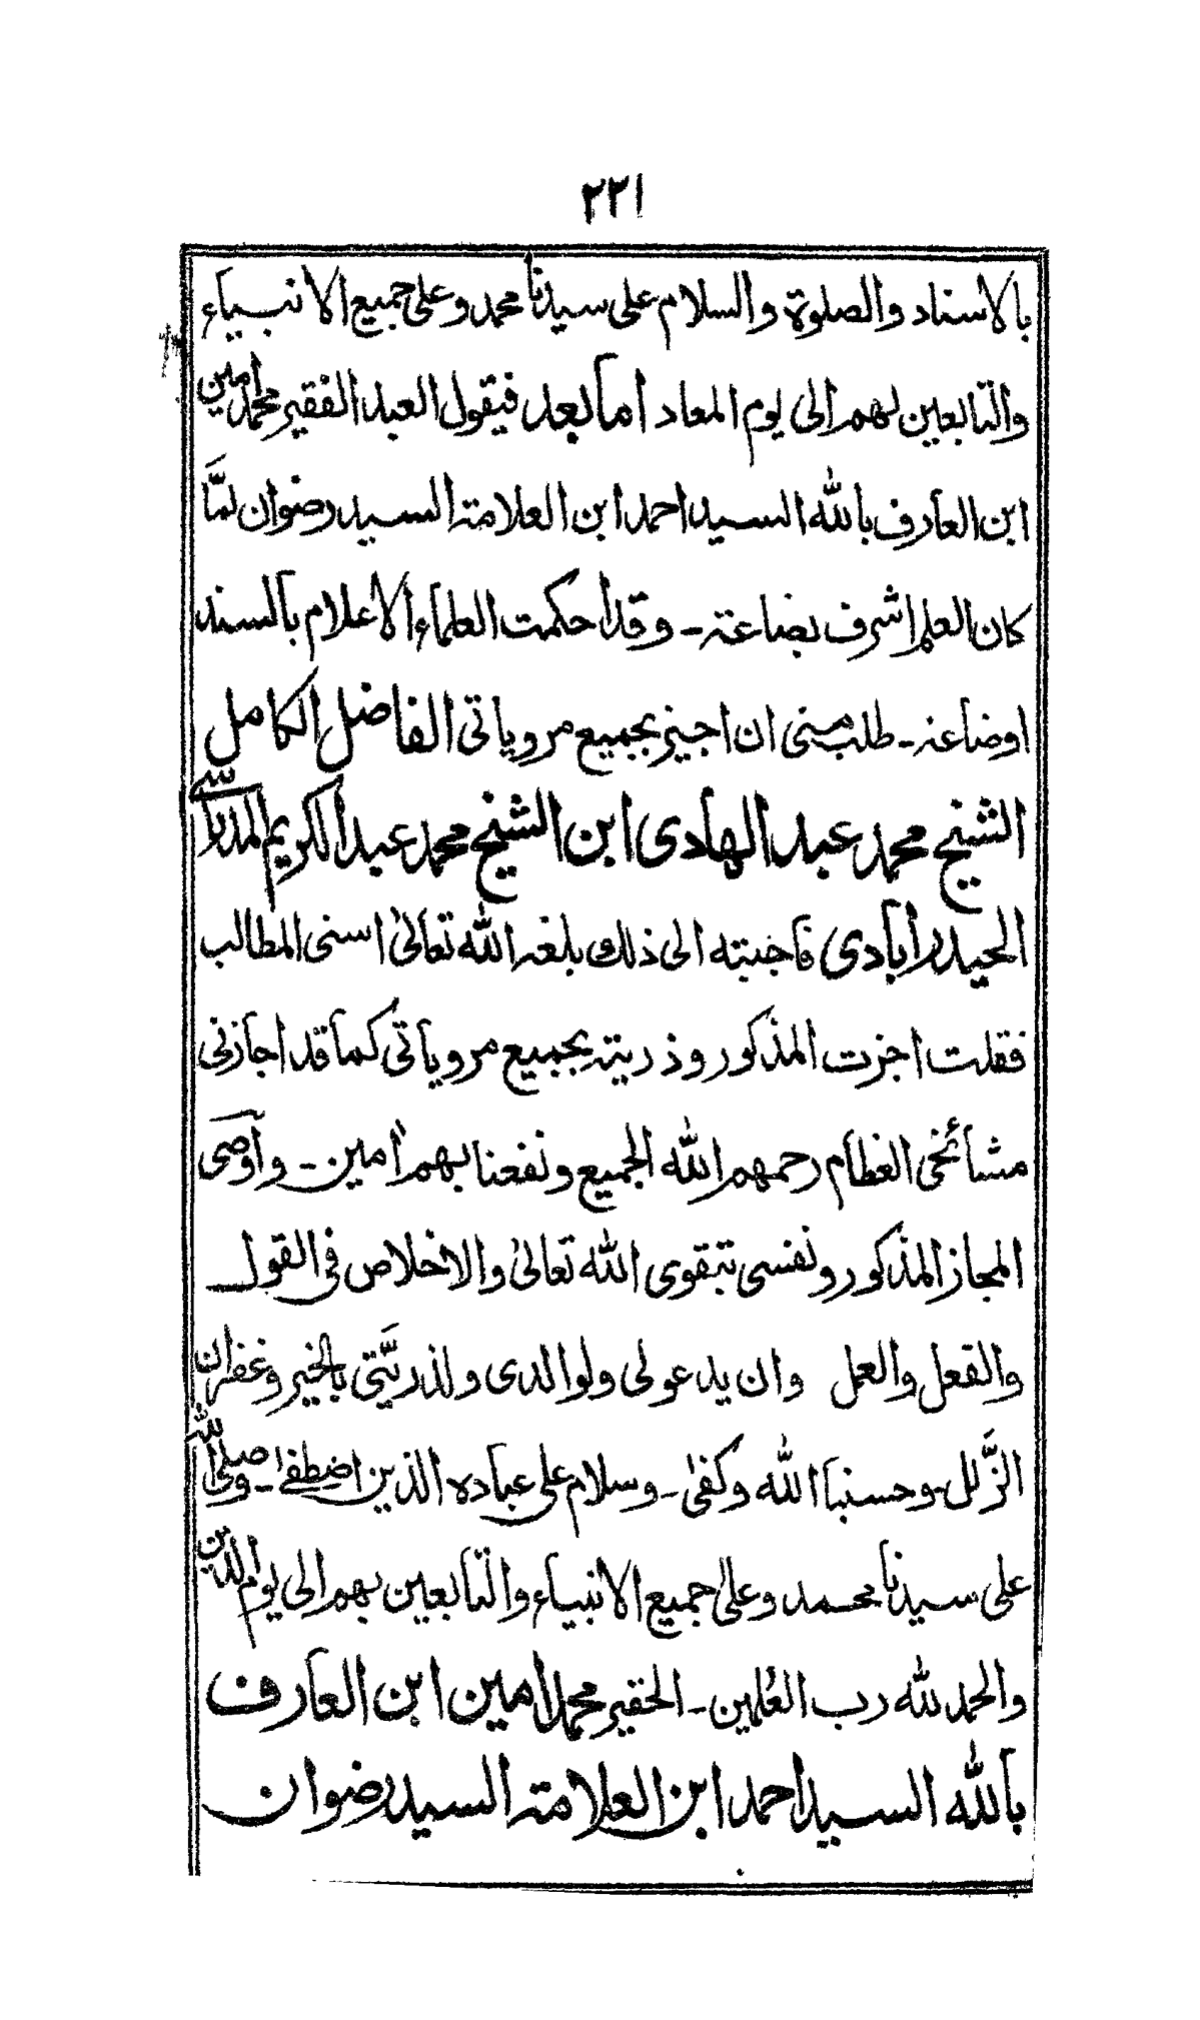 ٢٣١
بالاسناد والصلوة والسلام على سيدنا محمد وعلى جميع الانبياء
والتابعين لهم الى يوم المعاد اما بعد فيقول العبد الفقير محمد امين
ابن العارف بالله السيد احمد ابن العلامة السيد رضوان لمّا
كان العلم اشرف بضاعة - وقد احكمت العلماء الاعلام بالسند
اوضاعه - طلب منى ان اجيز بجميع مروياتى الفاضل الكامل
الشيخ محمد عبد الهادى ابن الشيخ محمد عبد الكريم المدراسى
الحيدرابادى فاجبته الى ذلك بلغه الله تعالىٰ اسنى المطالب
فقلت اجزت المذكور وذريته بجميع مروياتى كما قد اجازنى
مشائخى العظام رحمهم الله الجميع ونفعنا بهم اٰمين - واوصى
المجاز المذكور ونفسى بتقوى الله تعالىٰ والاخلاص فى القول
والفعل والعمل وان يدعو لى ولوالدى ولذريّتى بالخير وغفران
الزّلل - وحسنبا الله وكفىٰ - وسلام على عباده الذين اضطفےٰ - وصلى الله
على سيدنا محمد وعلىٰ جميع الانبياء والتابعين بهم الى يوم الدين
والحمد لله رب العٰلمين - الحقير محمد امين ابن العارف
بالله السيد احمد ابن العلامة السيد رضوان